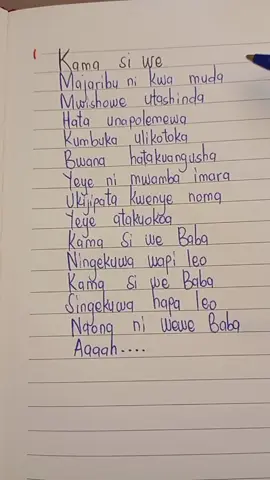 1
Kama si we
Majaribu ni kwa muda
Mwishowe utashinda
Hata unapolemewa
Kumbuka ulikotoka
Bwana hatakuangusha
Yeye ni mwamba imara
Ukijipata kwenye noma
Yeye atakuokoa
Kama si we Baba
Ningekuwa wapi leo
Kama si we Baba
Singekuwa hapa leo
Ndong ni wewe Baba
Aaaah....